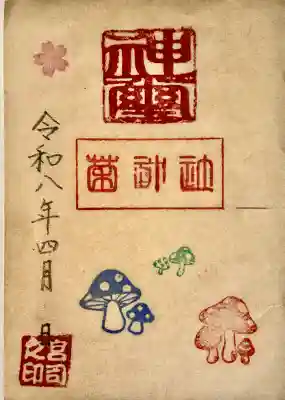 神璽
菌神社
令和八年四月 日
宮司之印